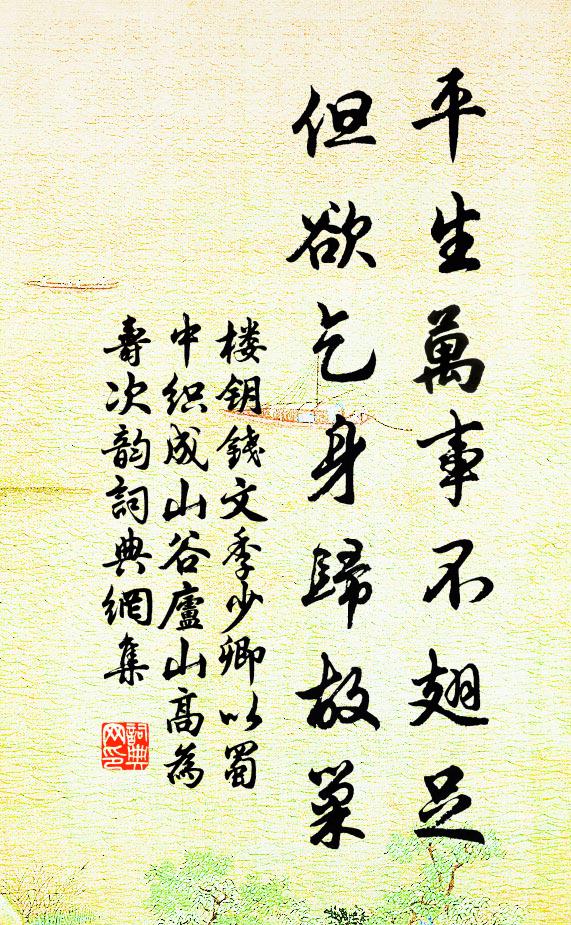 平生萬事不翅足
但欲乞身歸故巢
楼钥錢文季少卿以蜀
中织成山谷廬山高為
壽次韵詞典網集
詞典
网印